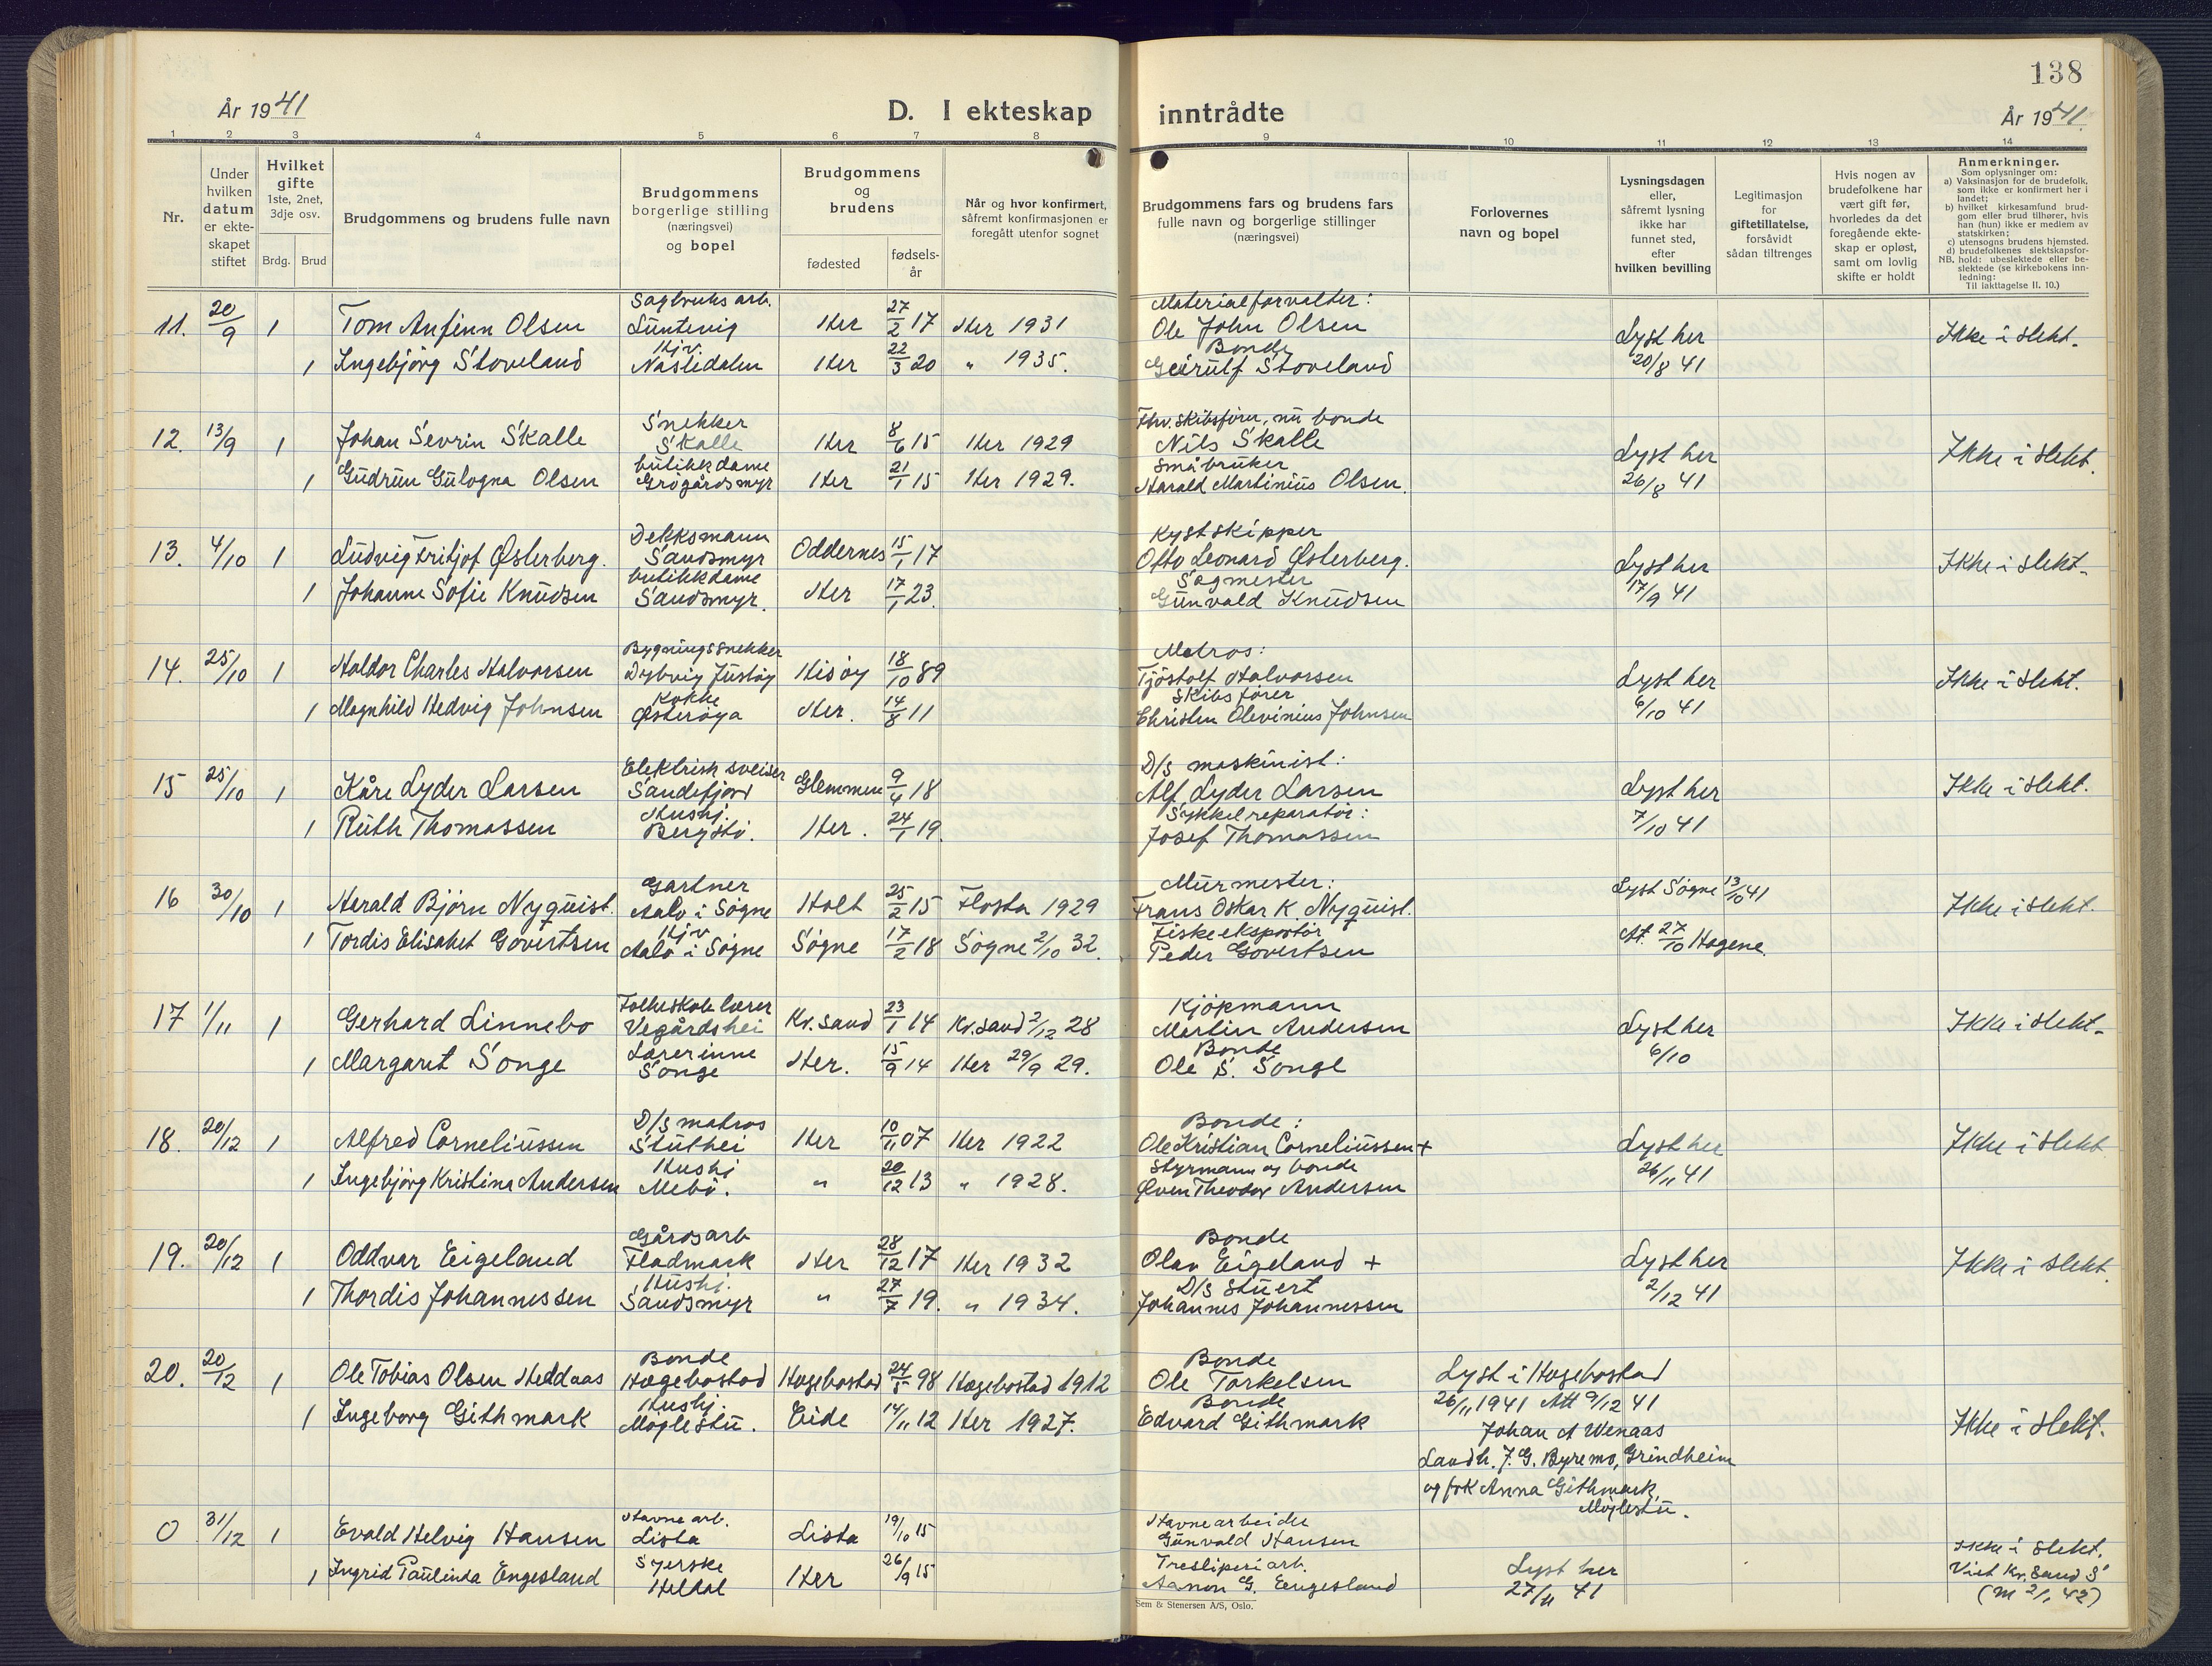 138
År 1941
D. I ekteskap inntrådte
År 1941.
1 2 3 4 5 6 7 8 9 10 11 12 13 14
Nr.
Under hvilken datum er ekteskapet stiftet
Hvilket gifte 1ste, 2net, 3dje osv.
Brdg. Brud
Brudgommens og brudens fulle navn
Brudgommens borgerlige stilling (næringsvei) og bopel
Brudgommens og brudens
fødested
fødselsår
Når og hvor konfirmert, såfremt konfirmasjonen er foregått utenfor sognet
Brudgommens fars og brudens fars fulle navn og borgerlige stillinger (næringsvei)
Forlovernes navn og bopel
Lysningsdagen eller, såfremt lysning ikke har funnet sted, efter hvilken bevilling
Legitimasjon for giftetillatelse, forsåvidt sådan tiltrenges
Hvis nogen av brudefolkene har vært gift før, hvorledes da det foregående ekteskap er opløst, samt om lovlig skifte er holdt
Anmerkninger.
Som oplysninger om:
a) Vaksinasjon for de brudefolk, som ikke er konfirmert her i landet;
b) hvilket kirkesamfund brudgom eller brud tilhører, hvis han (hun) ikke er medlem av statskirken;
c) utensogns brudens hjemsted.
d) brudefolkenes slektskapsforhold: ubeslektede eller beslektede (se kirkebokens innledning:
NB. Til iakttagelse II. 10.)
11. 20/9 1 Tom Anfinn Olsen Sagbruks arb. Luntevig Her 27/2 17 Her 1931 Materialforvalter: Ole John Olsen Lyst her 20/8 41 Ikke i slekt.
1 Ingebjörg Stoveland Hjv. Naslidalen Her 22/3 20 " 1935. Bonde Geirulf Stoveland
12. 13/9 1 Johan Sevrin Skalle Snekker Skalle Her 8/6 15 Her 1929 Fhv. skibsfører, nu bonde Nils Skalle Lyst her 26/8 41 Ikke i slekt.
1 Gudrun Gulogna Olsen butikkdame Grögårdsmyr Her 21/1 15 Her 1929. småbruker Harald Martinius Olsen.
13. 4/10 1 Ludvig Fritjof Østerberg. Dekksmann Sandsmyr Oddernes 15/1 17 Kystskipper Otto Leonard Østerberg. Lyst her 17/9 41 Ikke i slekt.
1 Johanne Sofie Knudsen butikkdame Sandsmyr. Her 17/1 23. Sagmester Gunvald Knudsen
14. 25/10 1 Haldor Charles Halvorsen Bygningssnekker Dybvig Justøy Hisöy 18/10 89 Matros: Tjöstolf Halvorsen Lyst her 6/10 41 Ikke i slekt.
1 Magnhild Hedvig Johnsen Kokke Østeröya Her. 14/8 11 Skibsfører Christen Olevinius Johnsen
15 25/10 1 Kåre Lyder Larsen Elektrisk sveiser Sandefjord Glemmen 9/4 18 D/s maskinist: Alf Lyder Larsen Lyst her 7/10 41 Ikke i slekt.
1 Ruth Thomassen Hushj. Bergstö. Her. 24/1 19. Sykkelreparatör: Josef Thomassen
16 30/10 1 Harald Björn Nyquist. Gartner Aalo i Søgne Holt 25/2 15 Flosta 1929 Murmester: Frans Oskar K. Nyquist. Lyst Søgne 13/10 41 Ikke i slekt.
1 Tordis Elisabet Govertsen Hjv Aalo i Søgne Søgne 17/2 18 Søgne 2/10 32. Fiskeeksportör Peder Govertsen At. 27/10 Hagene.
17 1/11 1 Gerhard Linnebo Folkeskolelærer Vegårdshei Kr.sand 23/1 14 Kr.sand 2/12 28 Kjöpmann Martin Andersen Lyst her 6/10 Ikke i slekt.
1 Margaret Songe Lærerinne Songe Her. 15/9 14 Her 29/9 29. Bonde Ole S. Songe
18. 20/12 1 Alfred Corneliussen D/s matros Stuthei Her 10/11 07 Her 1922 Bonde: Ole Kristian Corneliussen + Lyst her 26/11 41 Ikke i slekt
1 Ingebjörg Kristina Andersen Hushj Mebö. " 20/12 13 " 1928. Styrmann og bonde Even Theodor Andersen
19. 20/12 1 Oddvar Eigeland Gårdsarb Fladmark Her 28/12 17 Her 1932 Bonde Olav Eigeland + Lyst her 2/12 41 Ikke i slekt.
1 Thordis Johannessen Hushj. Sandsmyr " 27/7 19. " 1934. D/s Stuert Johannes Johannessen
20. 20/12 1 Ole Tobias Olsen Heddaas Bonde Hægebostad Hægebostad 24/5 98 Hægebostad 1912 Bonde Ole Torkelsen Lyst i Hægebostad
1 Ingeborg Githmark Hushj. Möglestu. Eide 14/11 12 Her 1927. Bonde Edvard Githmark 26/11 1941 Att 9/12 41 Ikke i slekt.
Johan A Wenaas
Landh. J. G. Byremo, Grindheim
og frk Anna Githmark, Möglestu.
0 31/12 1 Evald Helvig Hansen Havnearb. Lista Lista 19/10 15 Havnearbeider Gunvald Hansen Ikke i slekt.
1 Ingrid Paulinda Engesland Syerske Heldal Her 26/9 15 Tresliperiarb. Aanon G. Engesland Lyst her 27/11 41 Viet Kr.sand S (m 2/1 42)
Sem & Stenersen A/S, Oslo.